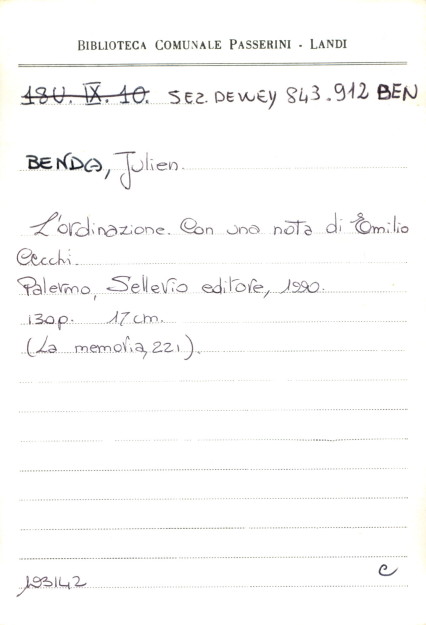 BIBLIOTECA COMUNALE PASSERINI - LANDI
18U. IX. 10. SEZ. DEWEY 843.912 BEN
BENDA, Julien.
L'ordinazione. Con una nota di Emilio
Cecchi.
Palermo, Sellerio editore, 1990.
130p. 17cm.
(La memoria, 221).
193142
C